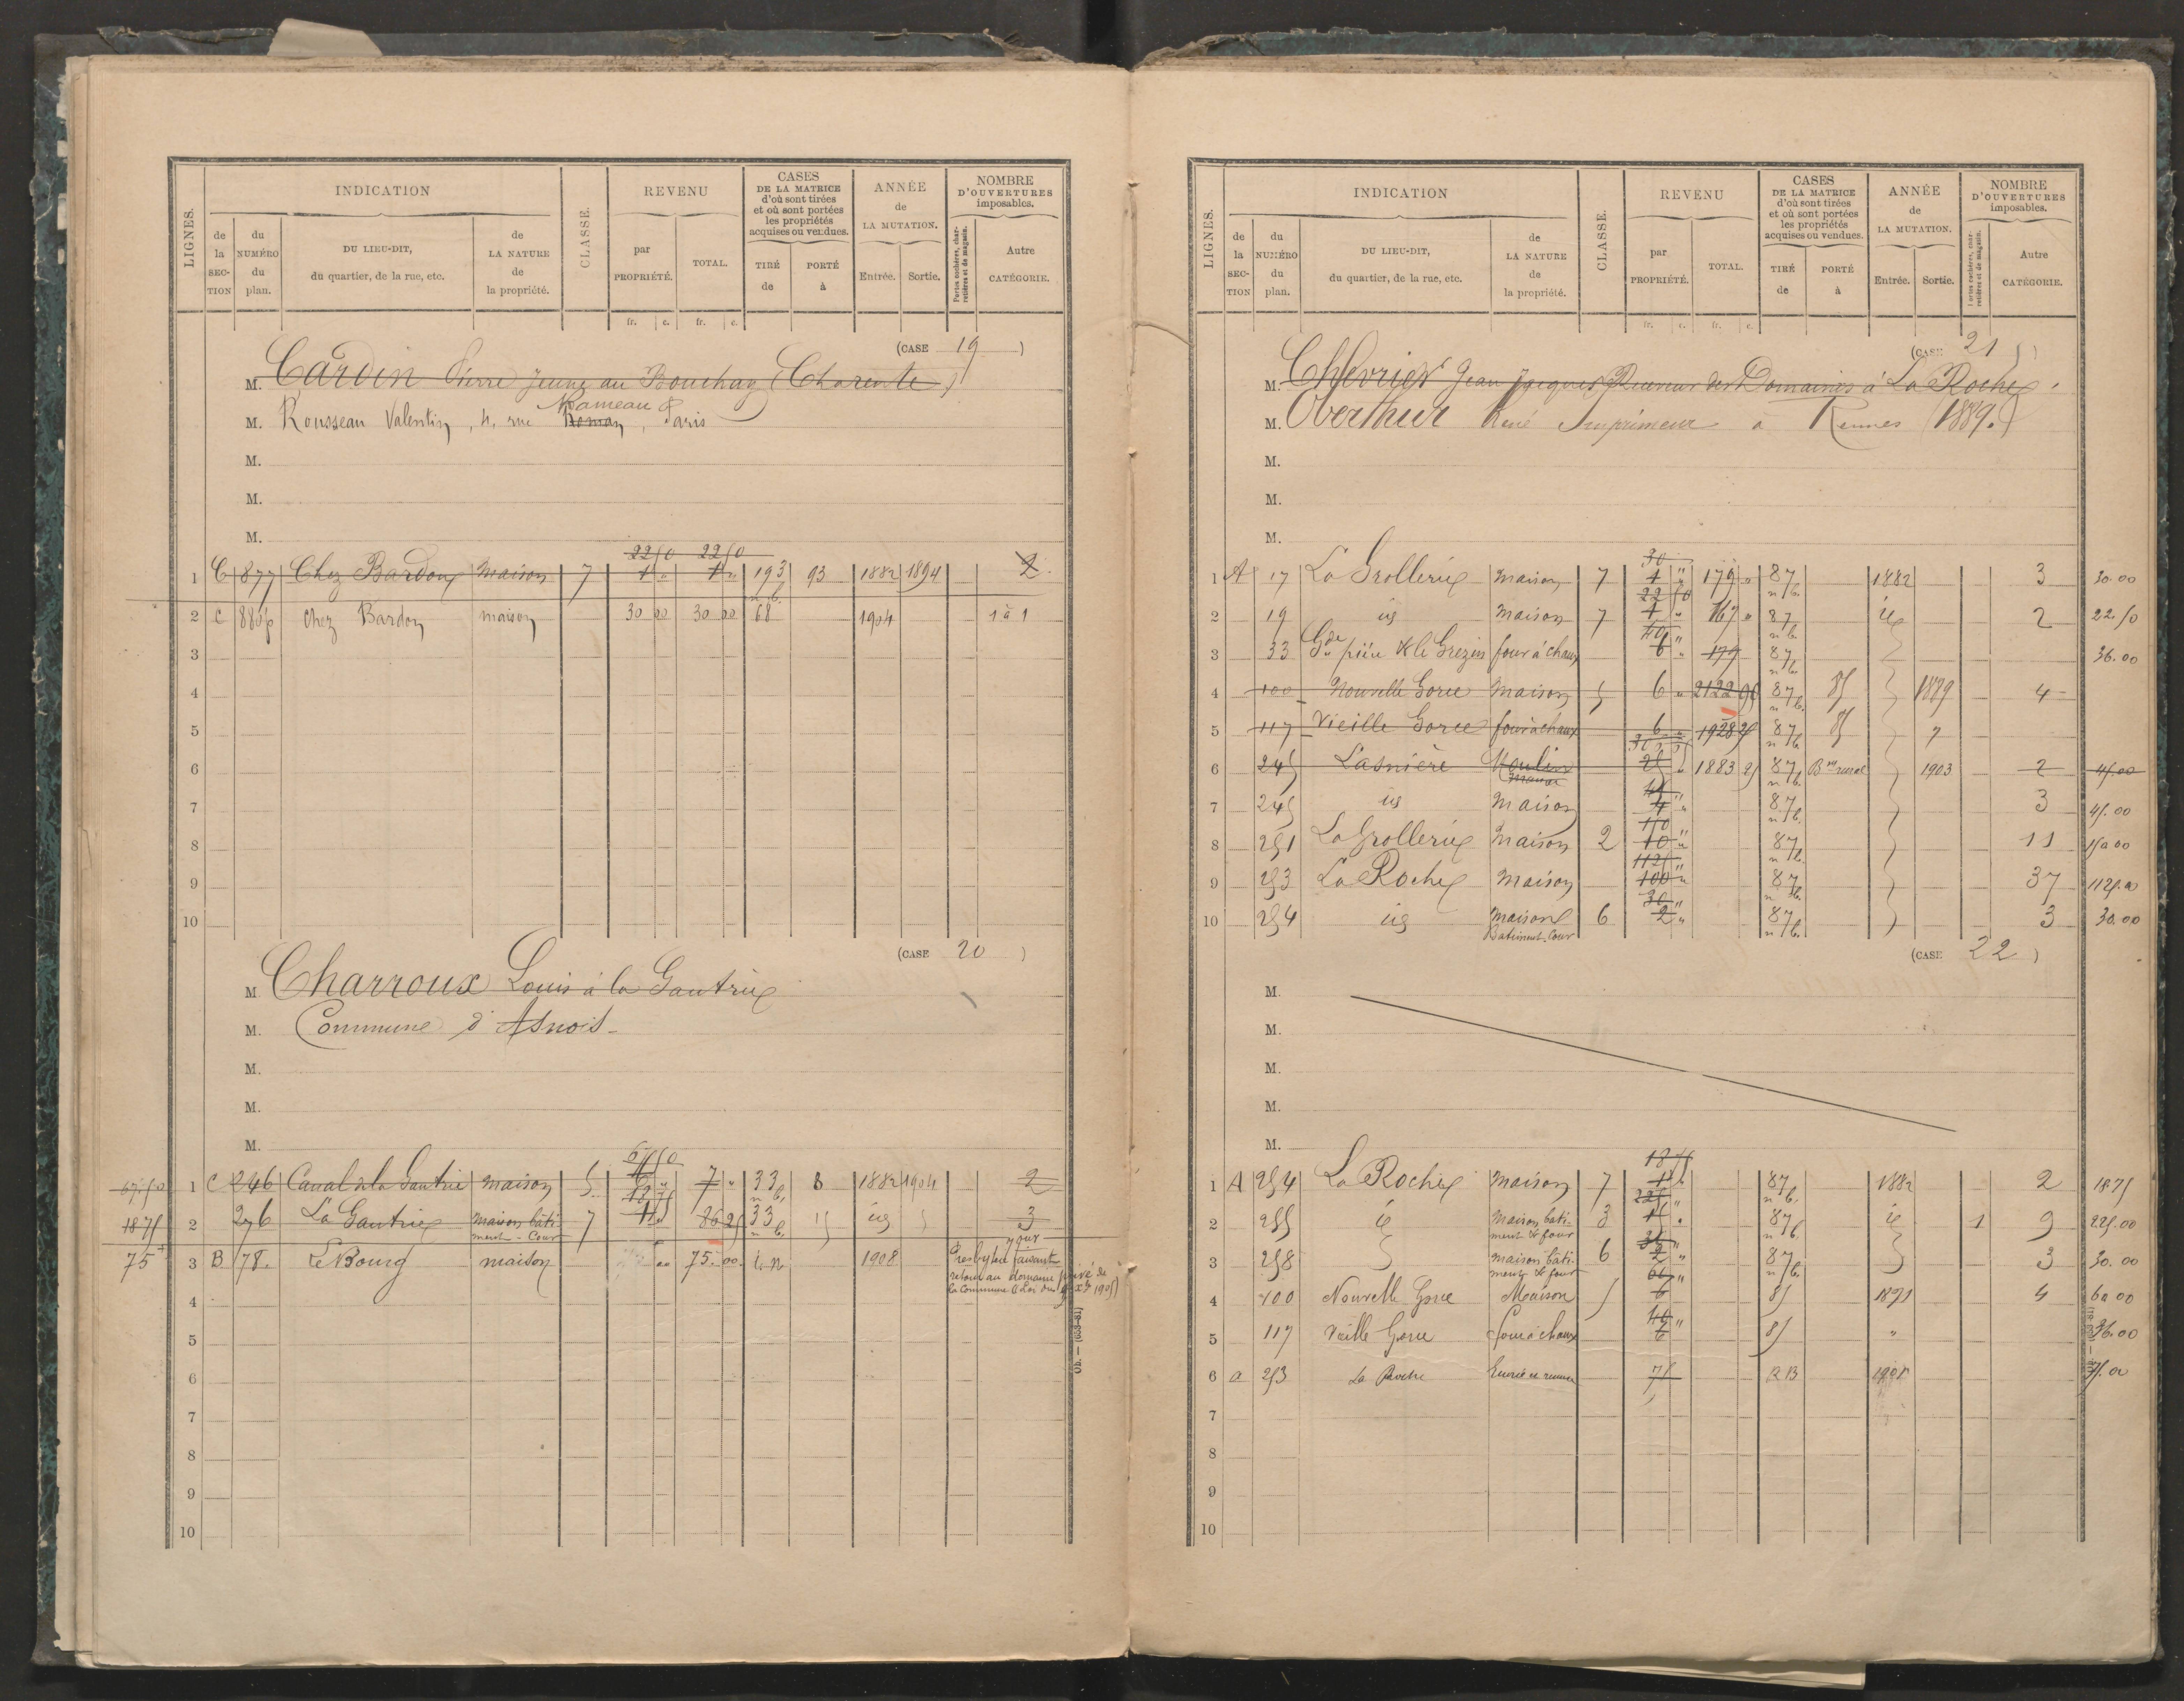 LIGNES.
INDICATION
de la SECTION
du NUMÉRO du plan.
DU LIEU-DIT, du quartier, de la rue, etc.
de LA NATURE de la propriété.
CLASSE.
REVENU
par PROPRIÉTÉ.
TOTAL.
CASES DE LA MATRICE d'où sont tirées et où sont portées les propriétés acquises ou vendues.
TIRÉ de
PORTÉ à
ANNÉE de LA MUTATION.
Entrée. Sortie.
NOMBRE D'OUVERTURES imposables.
Portes cochères, charretières et de magasin.
Autre CATÉGORIE.
fr. c. fr. c.
(CASE 19)
M. Cardin Pierre jeune au Bouchay (Charente)
M. Rousseau Valentin, 4, rue Rameau Paris
M.
M.
M.
22 50 22 50
1 C 877 Chez Bardon maison 7 1 " 1 " 193 93 1882 1894 2
2 C 880p Chez Bardon maison 30 00 30 00 68 1904 1 à 1
3
4
5
6
7
8
9
10
(CASE 20)
M Charroux Louis à la Gautrie
M. Commune d'Asnois
M.
M.
M.
67 50
67.50 1 C 246 Canal de la Gautrie maison 5 7 " 33 8 1882 1904 2
18 75
1875 2 276 La Gautrie maison bâtiment - Cour 7 1 86 25 33 id 3
75 3 B 78. Le Bourg maison 75.00 c.n 1908 Presbytère faisant
retour au domaine privé de
la Commune (Loi du 9 Xbre 1905)
4
5
6
7
8
9
10
LIGNES.
INDICATION
de la SECTION
du NUMÉRO du plan.
DU LIEU-DIT, du quartier, de la rue, etc.
de LA NATURE de la propriété.
CLASSE.
REVENU
par PROPRIÉTÉ.
TOTAL.
CASES DE LA MATRICE d'où sont tirées et où sont portées les propriétés acquises ou vendues.
TIRÉ de
PORTÉ à
ANNÉE de LA MUTATION.
Entrée. Sortie.
NOMBRE D'OUVERTURES imposables.
Portes cochères, charretières et de magasin.
Autre CATÉGORIE.
fr. c. fr. c.
(CASE 21)
M. Chevrier Jean Jacques Receveur des Domaines à La Roche
M. Oberthur René Imprimeur à Rennes (1889.)
M.
M.
M.
30
1 A 17 La Grollerie maison 7 1 " 179 " 87 1882 3 30.00
22 50
2 19 id maison 7 1 " 167 " 87 id 2 22.50
40
3 33 Gde pièce de Grezin four à chaux 6 " 179 87 36.00
4 100 Nouvelle Gorce maison 5 6 " 2122 95 87 85 1889 4
5 117 Vieille Gorce four à chaux 6 1928 25 87 85 "
6 245 Lasnière Moulin 25 " 1883 25 87 Bm rural 1903 2 45.00
45
7 245 id maison 4 " 87 3 45.00
150
8 251 La Grollerie maison 2 10 " 87 11 150 00
1125
9 253 La Roche maison 100 " 87 37 1125.00
30
10 254 id maison Bâtiment-Cour 6 2 " 87 3 30.00
(CASE 22)
M.
M.
M.
M.
M.
18 75
1 A 254 La Roche maison 7 1 " 87 1882 2 1875
225
2 255 id maison bâtiment & four 3 15 " 87 id 1 9 225.00
3 258 maison bâtiment & four 6 2 " 87 3 30.00
60
4 100 Nouvelle Gorce Maison 5 6 85 1891 4 60 00
40
5 117 Vieille Gorce four à chaux 6 85 " 36.00
6 a 253 La Roche 75 RB 75.00
7
8
9
10